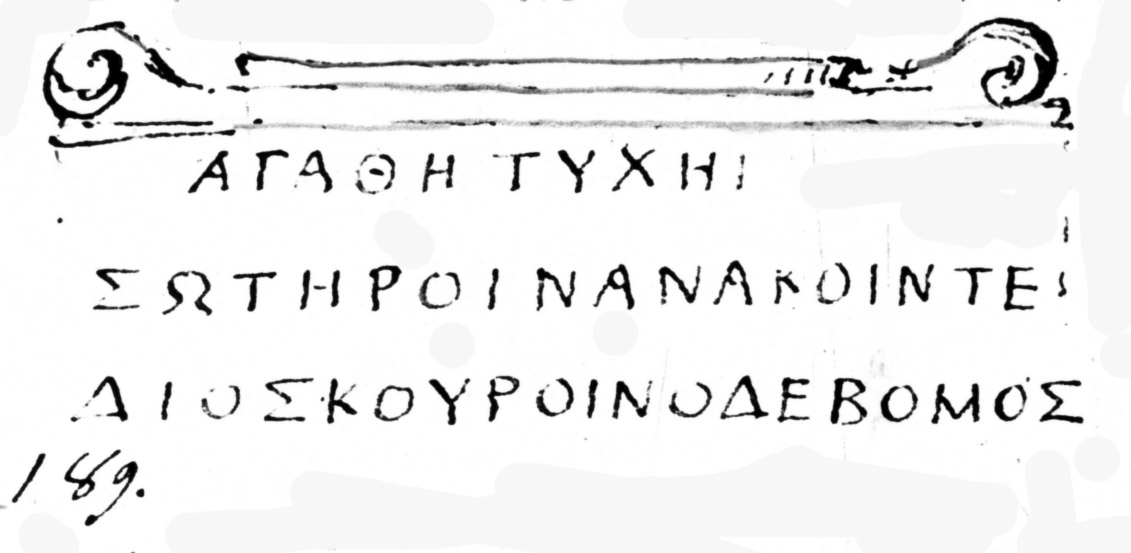 ΑΓΑΘΗ ΤΥΧΗΙ
ΣΩΤΗΡΟΙΝΑΝΑΚΟΙΝΤΕ
ΔΙΟΣΚΟΥΡΟΙΝΟΔΕΒΟΜΟΣ
189.